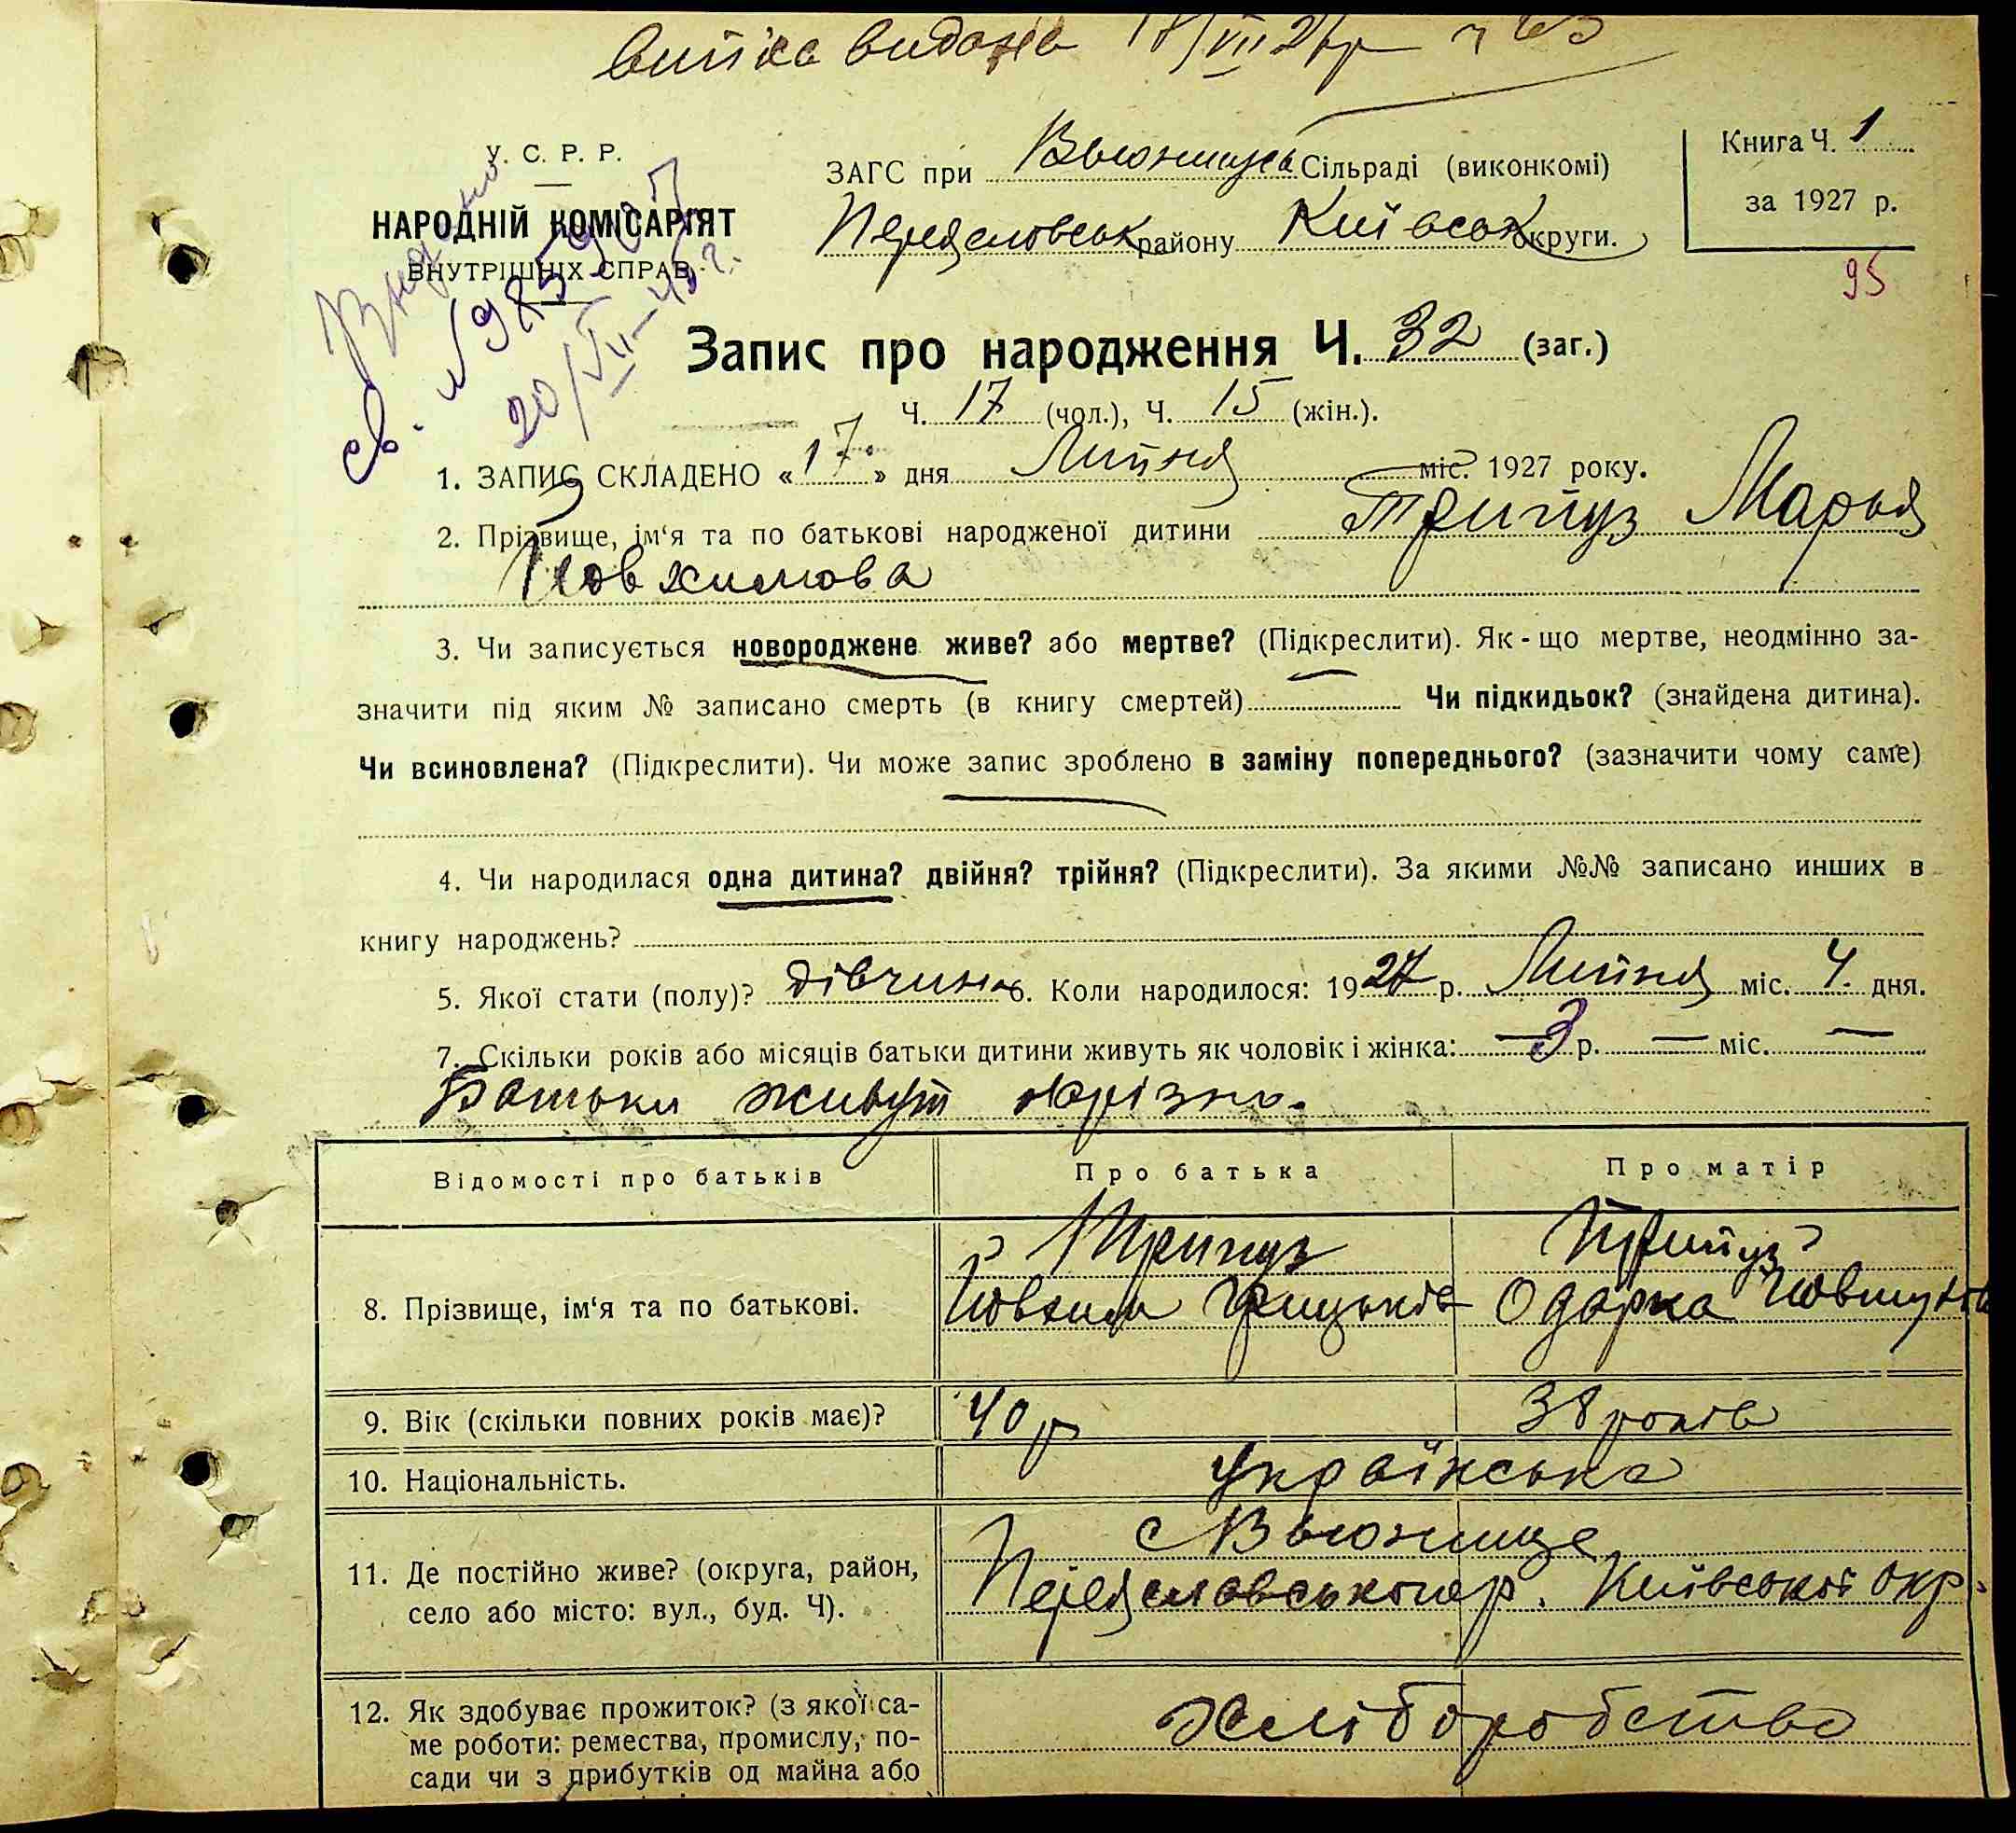 У. С. Р. Р.
НАРОДНІЙ КОМІСАРІЯТ
ВНУТРІШНІХ СПРАВ.
20/VII-45 г.
ЗАГС при Вьюнищах Сільраді (виконкомі)
Переяславськ району Київськ округи.
Книга Ч. 1
за 1927 р.
95
Запис про народження Ч. 32 (заг.)
Ч. 17 (чол.), Ч. 15 (жін.).
1. ЗАПИС СКЛАДЕНО «17» дня Липня міс. 1927 року.
2. Прізвище, ім'я та по батькові народженої дитини Трипуз Марья
Йовхимова
3. Чи записується новороджене живе? або мертве? (Підкреслити). Як-що мертве, неодмінно за-
значити під яким № записано смерть (в книгу смертей) Чи підкидьок? (знайдена дитина).
Чи всиновлена? (Підкреслити). Чи може запис зроблено в заміну попереднього? (зазначити чому саме)
4. Чи народилася одна дитина? двійня? трійня? (Підкреслити). За якими №№ записано инших в
книгу народжень?
5. Якої стати (полу)? дівчина 6. Коли народилося: 1927 р. Липня міс. 4. дня.
7. Скільки років або місяців батьки дитини живуть як чоловік і жінка: 3 р. — міс. —
Батьки живут окрізно.
Відомості про батьків Про батька Про матір
8. Прізвище, ім'я та по батькові.
Трипуз
Йовхим Грицьків
Трипуз
Одарка
9. Вік (скільки повних років має)? 40 р 38 років
10. Національність. українська
11. Де постійно живе? (округа, район,
село або місто: вул., буд. Ч).
с Вьюнище
Переяславського р. Київської окр.
12. Як здобуває прожиток? (з якої са-
ме роботи: ремества, промислу, по-
сади чи з прибутків од майна або
хліборобство